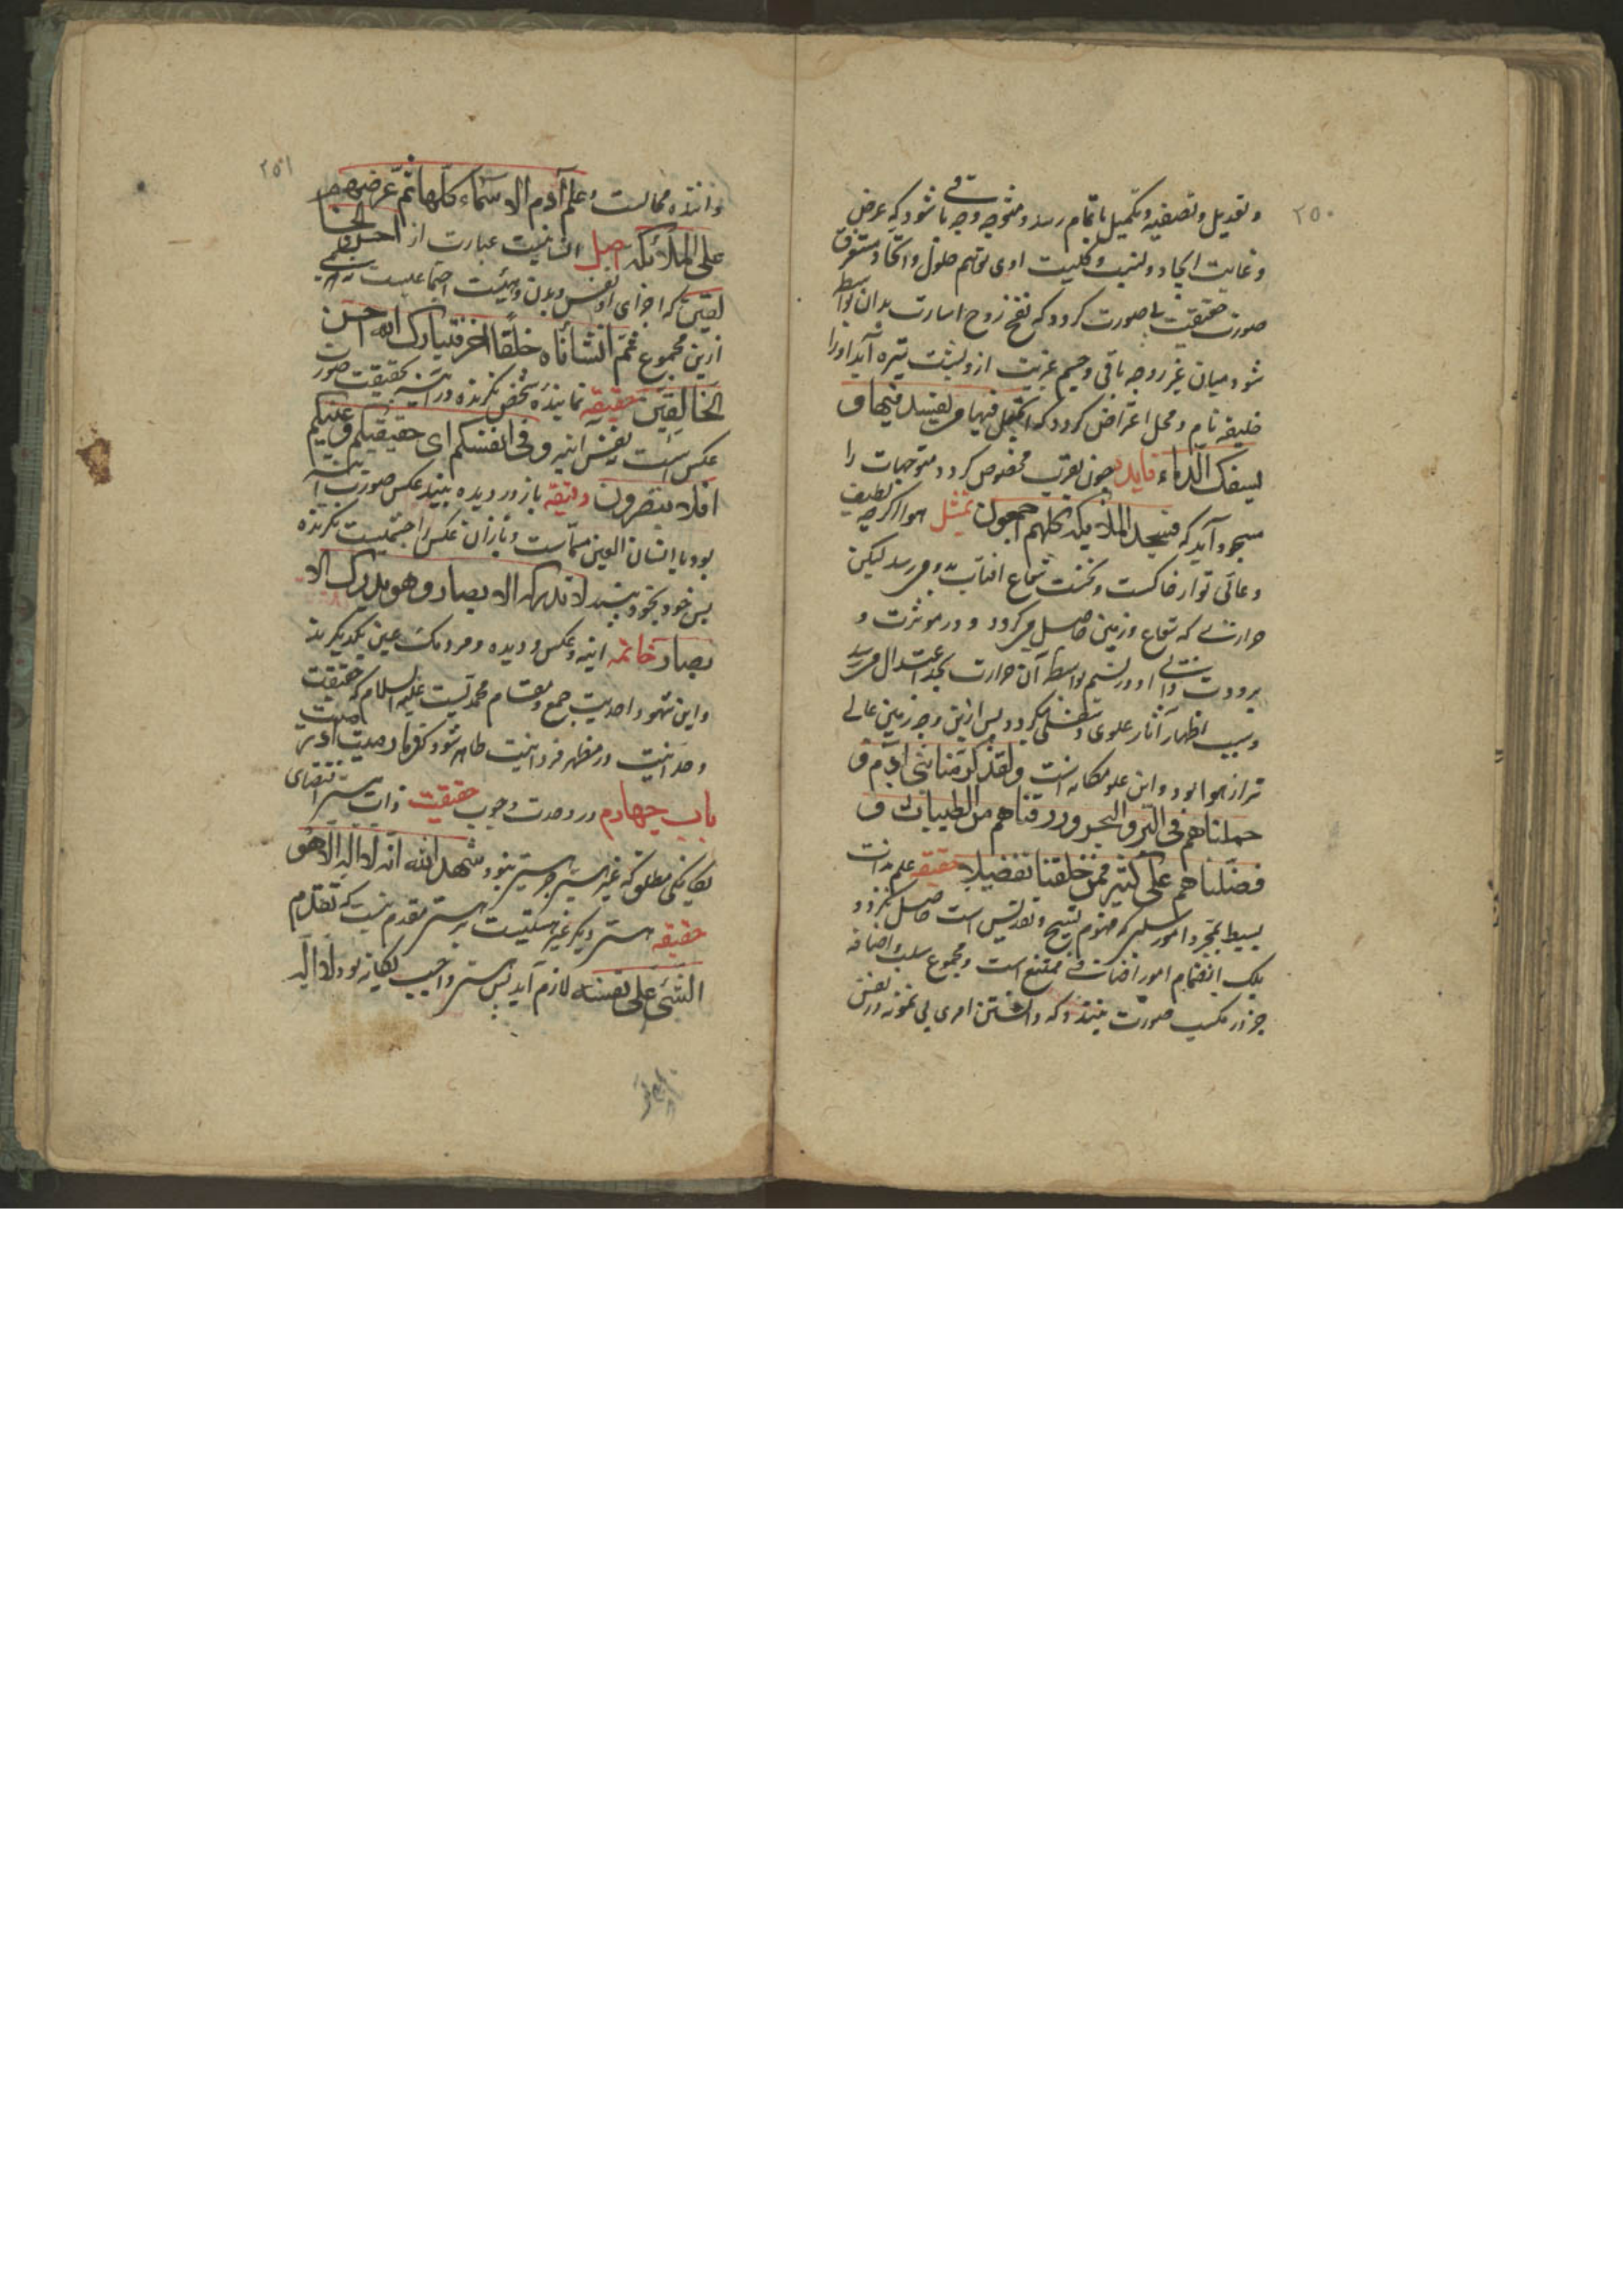 ٢٥٠
و تعدیل و تصفیه و تکمیل باتمام رسد و متوجه وجه باقی شود که عرض
و غایت ایجاد و لیت اوی توهم حلول و اتحاد مستغرق
صورت حقیقت با صورت کردد که نفخ روح اشارت بدان بواسطه
شود میان غیر روح باقی و جسم غریب از و لیت تیره آید او را
خلیفه نام و محل اعتراض کردد که اتجعل فیها من یفسد فیها و
یسفک الدماء فایده چون بقرب مخصوص کردد متوجهات را
سجود آید که فسجد الملائکه کلهم اجمعون تمثیل هوا اکرچه لطیف
و عالی تر از خاکست و نخست شعاع افتاب بدو میرسد لیکن
حرارتی که شعاع و زمین حاصل میکردد و در موثرت و
برودت ذاتی او در نسیم بواسطه آن حرارت بحد اعتدال میرسد
و سبب اظهار آثار علوی و سفلی میکردد پس ازین وجه زمین عالی
تر از هوا بود و این علو مکانه است ولقد کرمنا بنی آدم و
حملناهم فی البر و البحر و رزقناهم من الطیبات و
فضلناهم علی کثیر ممن خلقنا تفضیلا حقیقه علم ذات
بسیط بمجرد امور سلبی که مفهوم تسبیح و تقدیس است حاصل نکردد
بلک انضمام امور اضافی ممتنع است و مجموع سلب و اضافه
جز در مکسب صورت نبندد که دانستن امری بی نمونه در نفس
٢٥١
داننده محالست وعلم آدم الاسماء کلها ثم عرضهم
علی الملائکه اصل انسانیت عبارت از احسن الخا
لقین که اجزای او نفس و بدن و هیئت اجتماعیست
ازین مجموع ثم انشأناه خلقا اخر فتبارک الله احسن
الخالقین حقیقه نماینده شخص نکرنده در آینه بحقیقت صورت
عکس است نه نفس آینه و فی انفسکم ای حقیقتکم و عینکم
افلا تبصرون دقیقه باز در دیده بیند عکس صورت آینه
بود با انسان العین مسماست و باز آن عکس را چشمیست نکرنده
پس خود بخود بیند لا تدرکه الابصار وهو یدرک الا
بصار خاتمه اینه و عکس و دیده و مردمک عین یکدیکرند
و این شهود احدیت جمع و مقام محمدیست علیه السلام که حقیقت
وحدانیت در مظهر فردانیت ظاهر شود که و ما رمیت اذ رمیت
باب چهارم در وحدت وجوب حقیقت ذات هستی اقتضای
یکانکی مطلق که غیر هستی جز هستی نبود شهد الله انه لا اله الا هو
حقیقه هستی دیکر غیر هستیست بر هستی مقدم نیست که تقدم
الشئ علی نفسه لازم آید پس هستی واجب یکانه بود لا اله